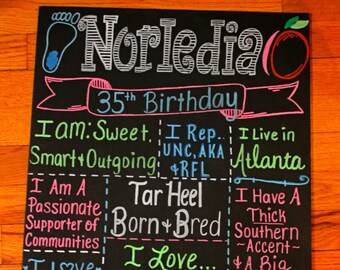 Norledia
35th Birthday
I am: Sweet,
Smart & Outgoing
I Rep..
UNC, AKA
& RFL
I Live in
Atlanta
I Am A
Passionate
Supporter of
Communities
Tar Heel
Born & Bred
I Have A
Thick
Southern
~Accent~
& A Big
I Love
I Love...